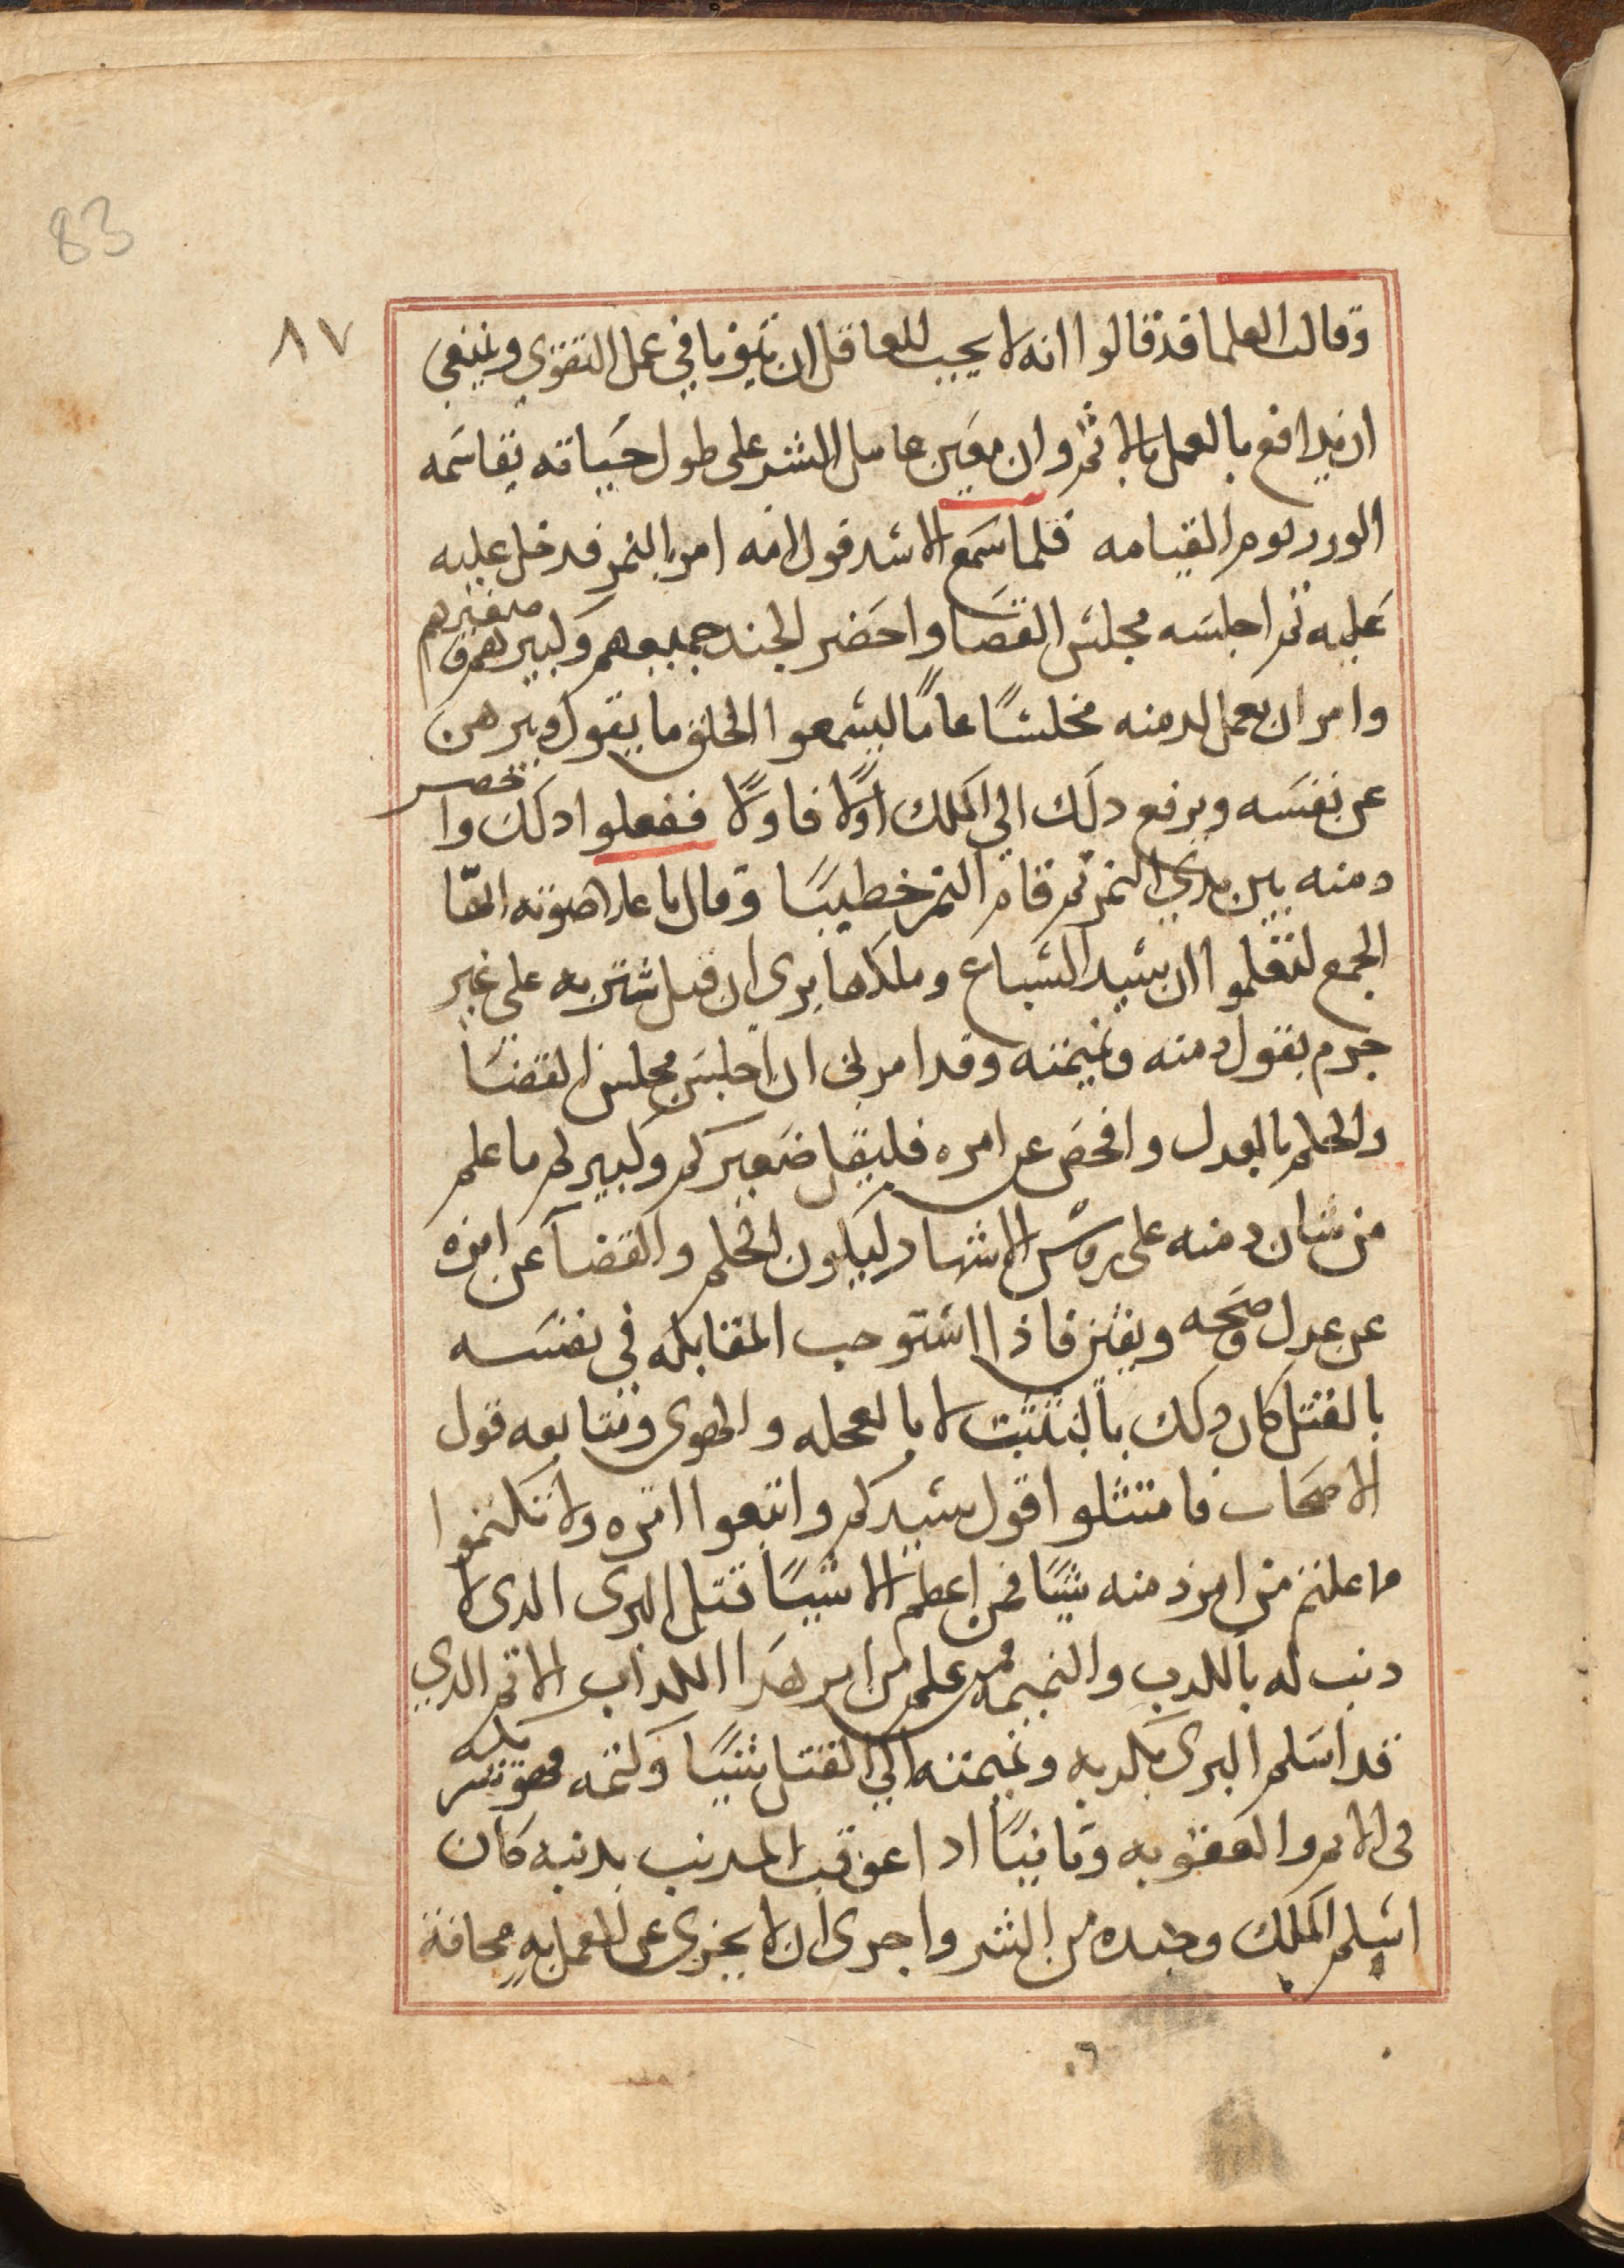 83
٨٧
وقالت العلما قد قالوا انه لا يجب للعاقل ان يتوفا في عمل التقوي وينبغي
ان يدافع بالعمل بالاثم وان معين عامل الشر على طول حياته يقاسمه
الورد يوم القيامه فلما سمع الاسد قول امه امر بالنمر فدخل عليه
عليه ثم اجلسه مجلس القضا واحضر الجند جميعهم وكبيرهم وصغيرهم
وامر ان يعمل لدمنه مجلسًا عامًا ليسمعوا الخلق ما يقول ويبرهن
عن نفسه ويرفع دلك الي الملك اولًا فاولًا ففعلوا دلك واحضر
دمنه بين يدي النمر ثم قام النمر خطيبًا وقال باعلا صوته ايها
الجمع لتعلموا ان سيد السباع وملكها يرى ان قتل شتربه على غير
جرم بقول دمنه ونميمته وقد امرني ان اجلس مجلس القضا
والحكم بالعدل وافحص عن امره فليقل صغيركم وكبيركم ما علم
من شان دمنه على روس الاشهاد ليكون الحكم والقضآ عن امره
عن عدل وصحه ويقين فاذا استوجب المقابله في نفسه
بالقتل كان دلك بالتثبت لا بالعجله والهوى ومتابعه قول
الاصحاب فامتثلوا قول سيدكم واتبعوا امره ولا تكتموا
ما علمتم من امر دمنه شيًا فمن اعظم الاشيا قتل البرى الدى لا
دنب له بالكدب والنميمه فمن علم من امر هدا الكداب الاثم الدي
قد اسلم البرى بكدبه ونميمته الي القتل شيًا وكتمه فهو شريكه
فى الاثم والعقوبه وثانيًا ادا عوقب المدنب بدنبه كان
اسلم للملك وجنده من الشر واجرى ان لا يجرى على العمل به مخافة